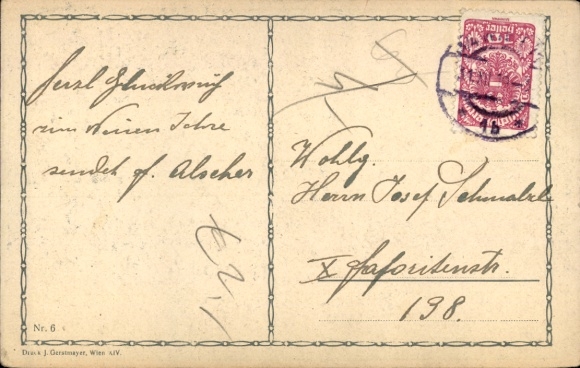 Herzl Glückwusch
zum Neuen Jahre
sendet f. Alscher
Wohlg.
Herrn Josef Schmalzl
X Faforitenstr.
198.
Nr. 6
Druck J. Gerstmayer, Wien XIV.
16